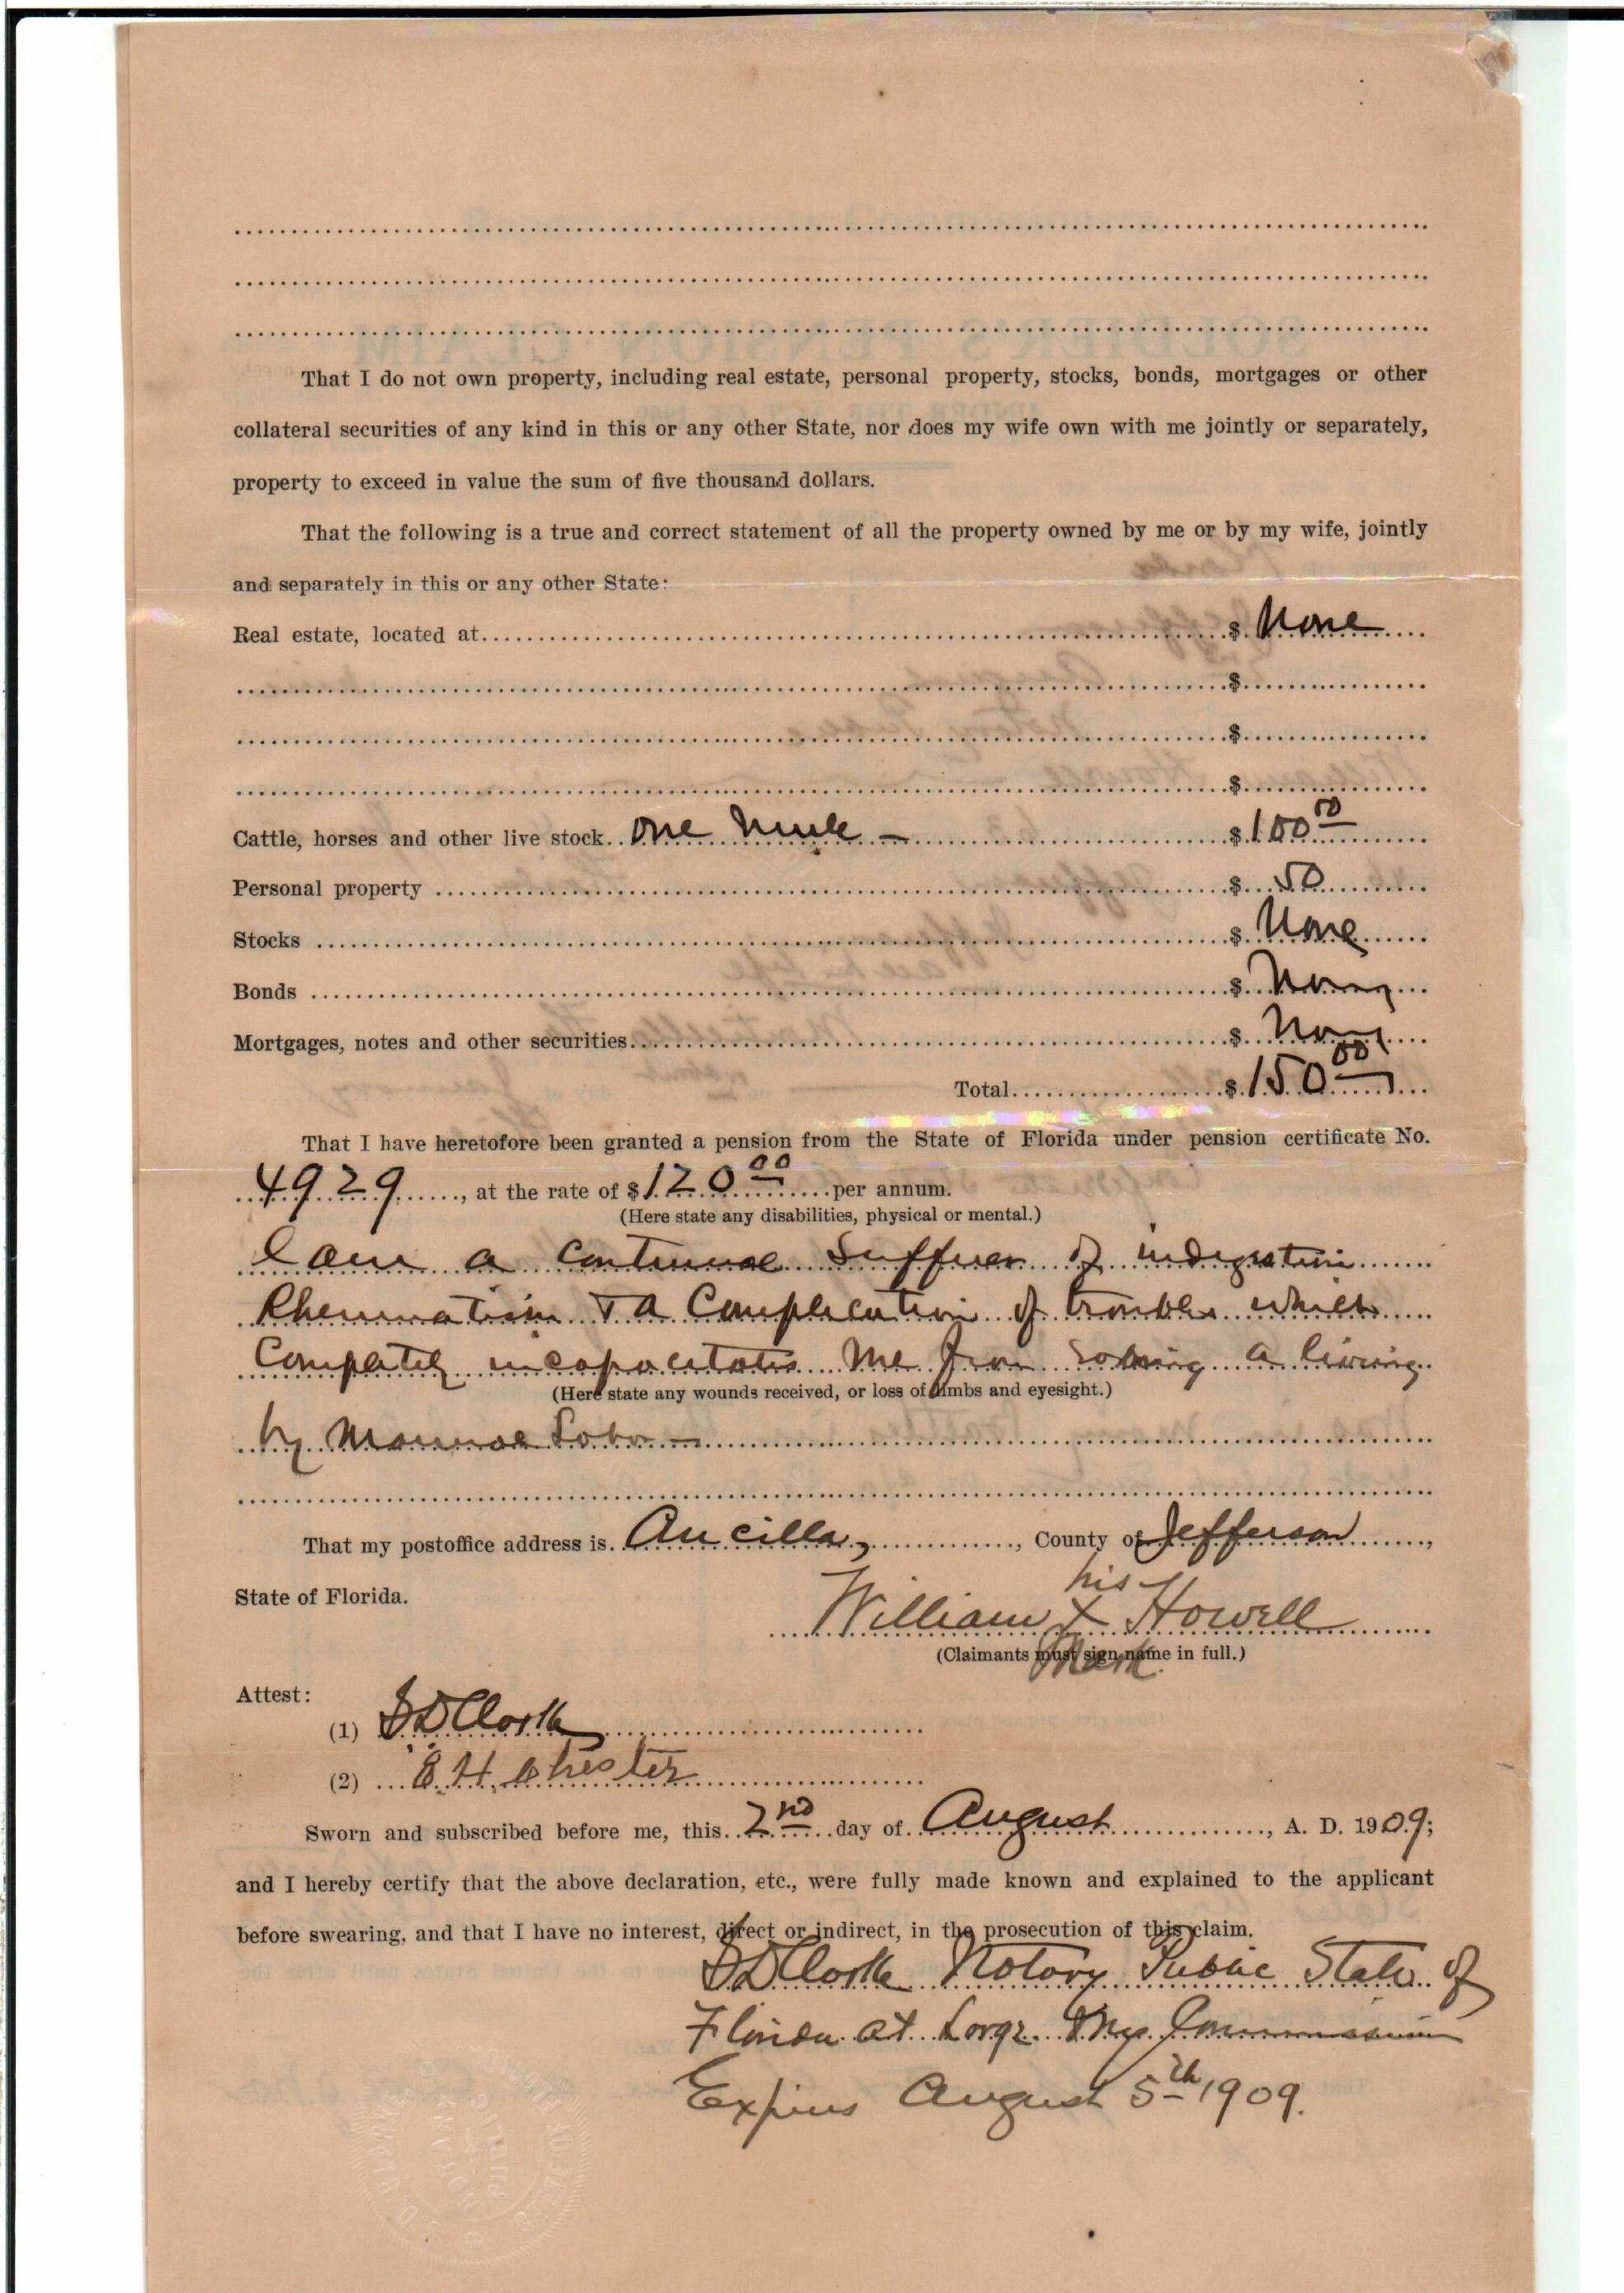 That I do not own property, including real estate, personal property, stocks, bonds, mortgages or other
collateral securities of any kind in this or any other State, nor does my wife own with me jointly or separately,
property to exceed in value the sum of five thousand dollars.
That the following is a true and correct statement of all the property owned by me or by my wife, jointly
and separately in this or any other State:
Real estate, located at $ None
$
$
$
Cattle, horses and other live stock. One Mule — $ 100 00
Personal property $ 50
Stocks $ None
Bonds $ None
Mortgages, notes and other securities $ None
Total $ 150 00
That I have heretofore been granted a pension from the State of Florida under pension certificate No.
4929, at the rate of $ 120 00 per annum.
(Here state any disabilities, physical or mental.)
I am a continual Suffrer of indigestion
Rheumatism & a Complication of troubles which
Completely incapacitates me from making a living
(Here state any wounds received, or loss of limbs and eyesight.)
by Manual Labor —
That my postoffice address is Aucilla, County of Jefferson,
State of Florida.
his
William X Howell
(Claimants must sign name in full.)
Mark.
Attest:
(1) S D Clark
(2) E. H. Chester
Sworn and subscribed before me, this 2nd day of August, A. D. 1909;
and I hereby certify that the above declaration, etc., were fully made known and explained to the applicant
before swearing, and that I have no interest, direct or indirect, in the prosecution of this claim.
S D Clark Notary Public State of
Florida at Large. My Commission
Expires August 5th 1909.